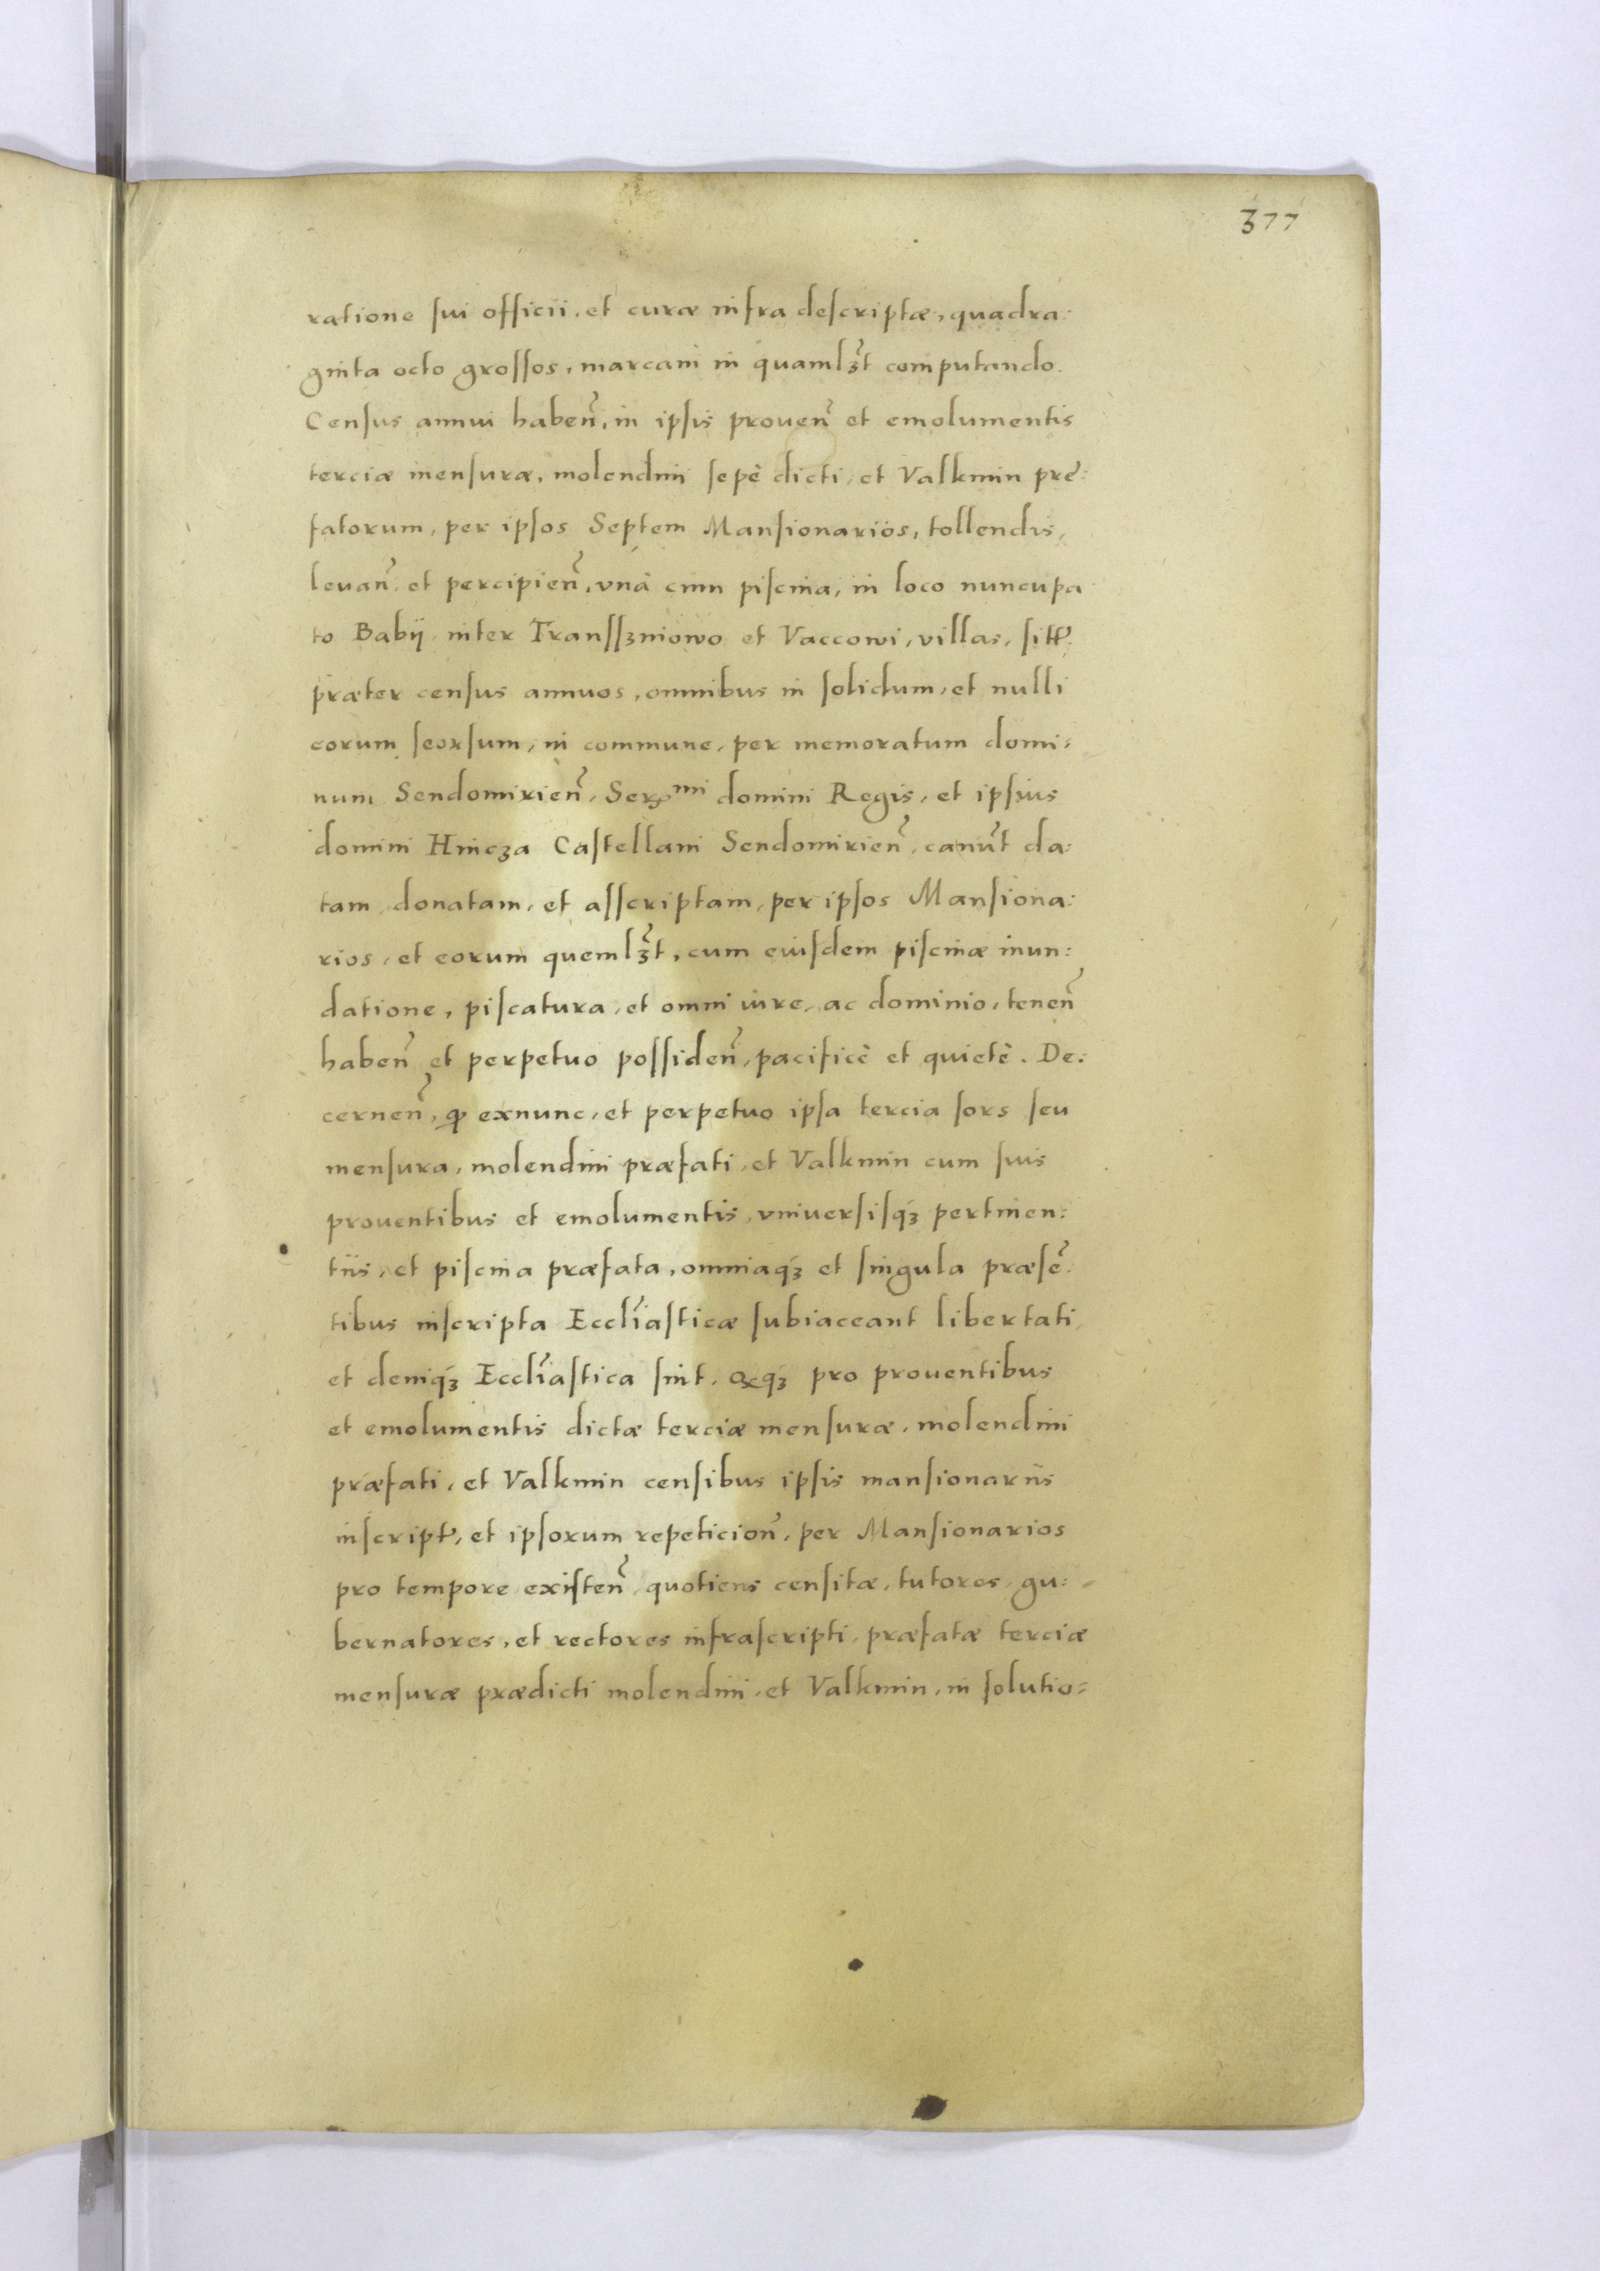 377
ratione sui officii, et curæ infra descriptæ, quadra:
ginta octo grossos, marcam in quamlꝫt computando.
Census annui habeñ, in ipsis proueñ et emolumentis
terciæ mensuræ, molendini sepè dicti, et Valkmin pre:
fatorum, per ipsos Septem Mansionarios, tollendis,
leuañ, et percipieñ, vnà cum piscina, in loco nuncupa
to Babij inter Transszniowo et Vaccowi, villas,
præter census annuos, omnibus in solidum, et nulli
eorum seorsum, in commune, per memoratum domi:
num Sendomirieñ, Ser mi domini Regis, et ipsius
domini Hincza Castellani Sendomirieñ, da:
tam, donatam, et asscriptam, per ipsos Mansiona:
rios, et eorum quemlꝫt, cum eiusdem piscinæ inun:
datione, piscatura, et omni iure, ac dominio, teneñ
habeñ et perpetuo possideñ, pacificè et quietè. De:
cerneñ, ꝙ exnunc, et perpetuo ipsa tercia sors seu
mensura, molendini præfati, et Valkmin cum suis
prouentibus et emolumentis, vniuersisqꝫ pertinen:
tiis, et piscina præfata, omniaqꝫ et singula præsẽ:
tibus inscripta Eccl̃iasticæ subiaceant libertati,
et deniqꝫ Eccl̃iastica sint, pro prouentibus
et emolumentis dictæ terciæ mensuræ, molendini
præfati, et Valkmin censibus ipsis mansionariis
inscript, et ipsorum repeticioñ, per Mansionarios
pro tempore existeñ, quotiens censitæ, tutores, gu:
bernatores, et rectores infrascripti, præfatæ terciæ
mensuræ prædicti molendini, et Valkmin, in solutio=